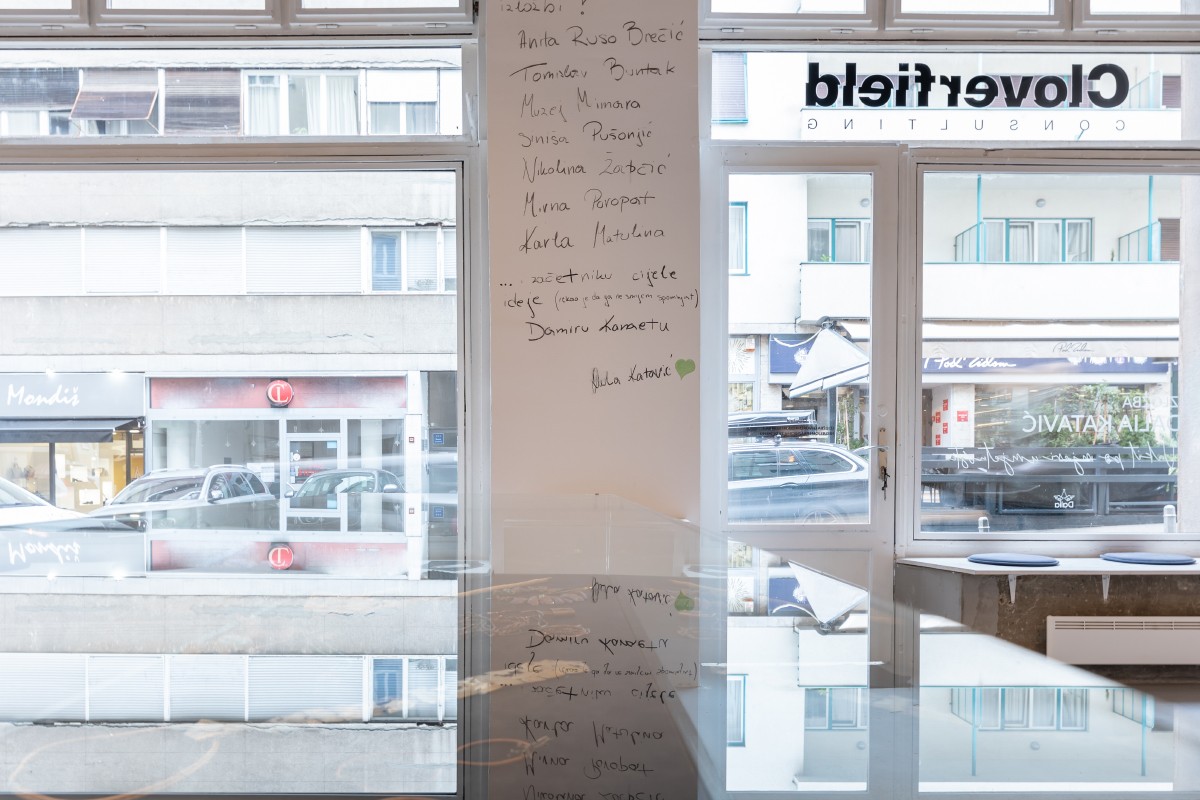 izložbi!
Anita Ruso Brečić
Tomislav Buntak
Muzej Mimara
Siniša Pušonjić
Nikolina Žabčić
Mirna Poropat
Karla Matulina
... začetniku cijele
ideje (rekao je da ga ne smijem spominjat)
Damiru Kanaetu
Dalia Katavić
Cloverfield
CONSULTING
Mondiš
Pod zidom
IZLOŽBA
DALIA KATAVIĆ
Dalia